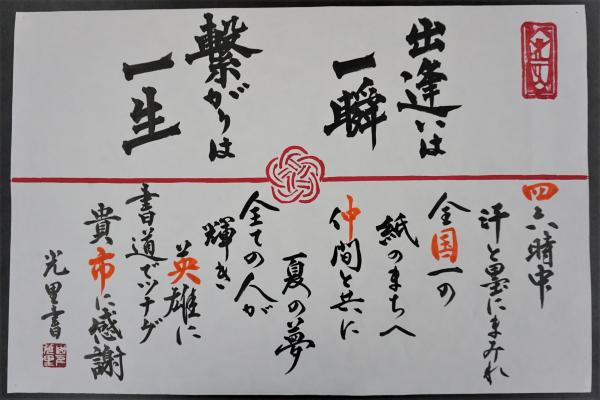 出逢いは
一瞬
繋がりは
一生
四六時中
汗と墨にまみれ
全国一の
紙のまちへ
仲間と共に
夏の夢
全ての人が
輝き
英雄に
書道でツナグ
貴市に感謝
光里書